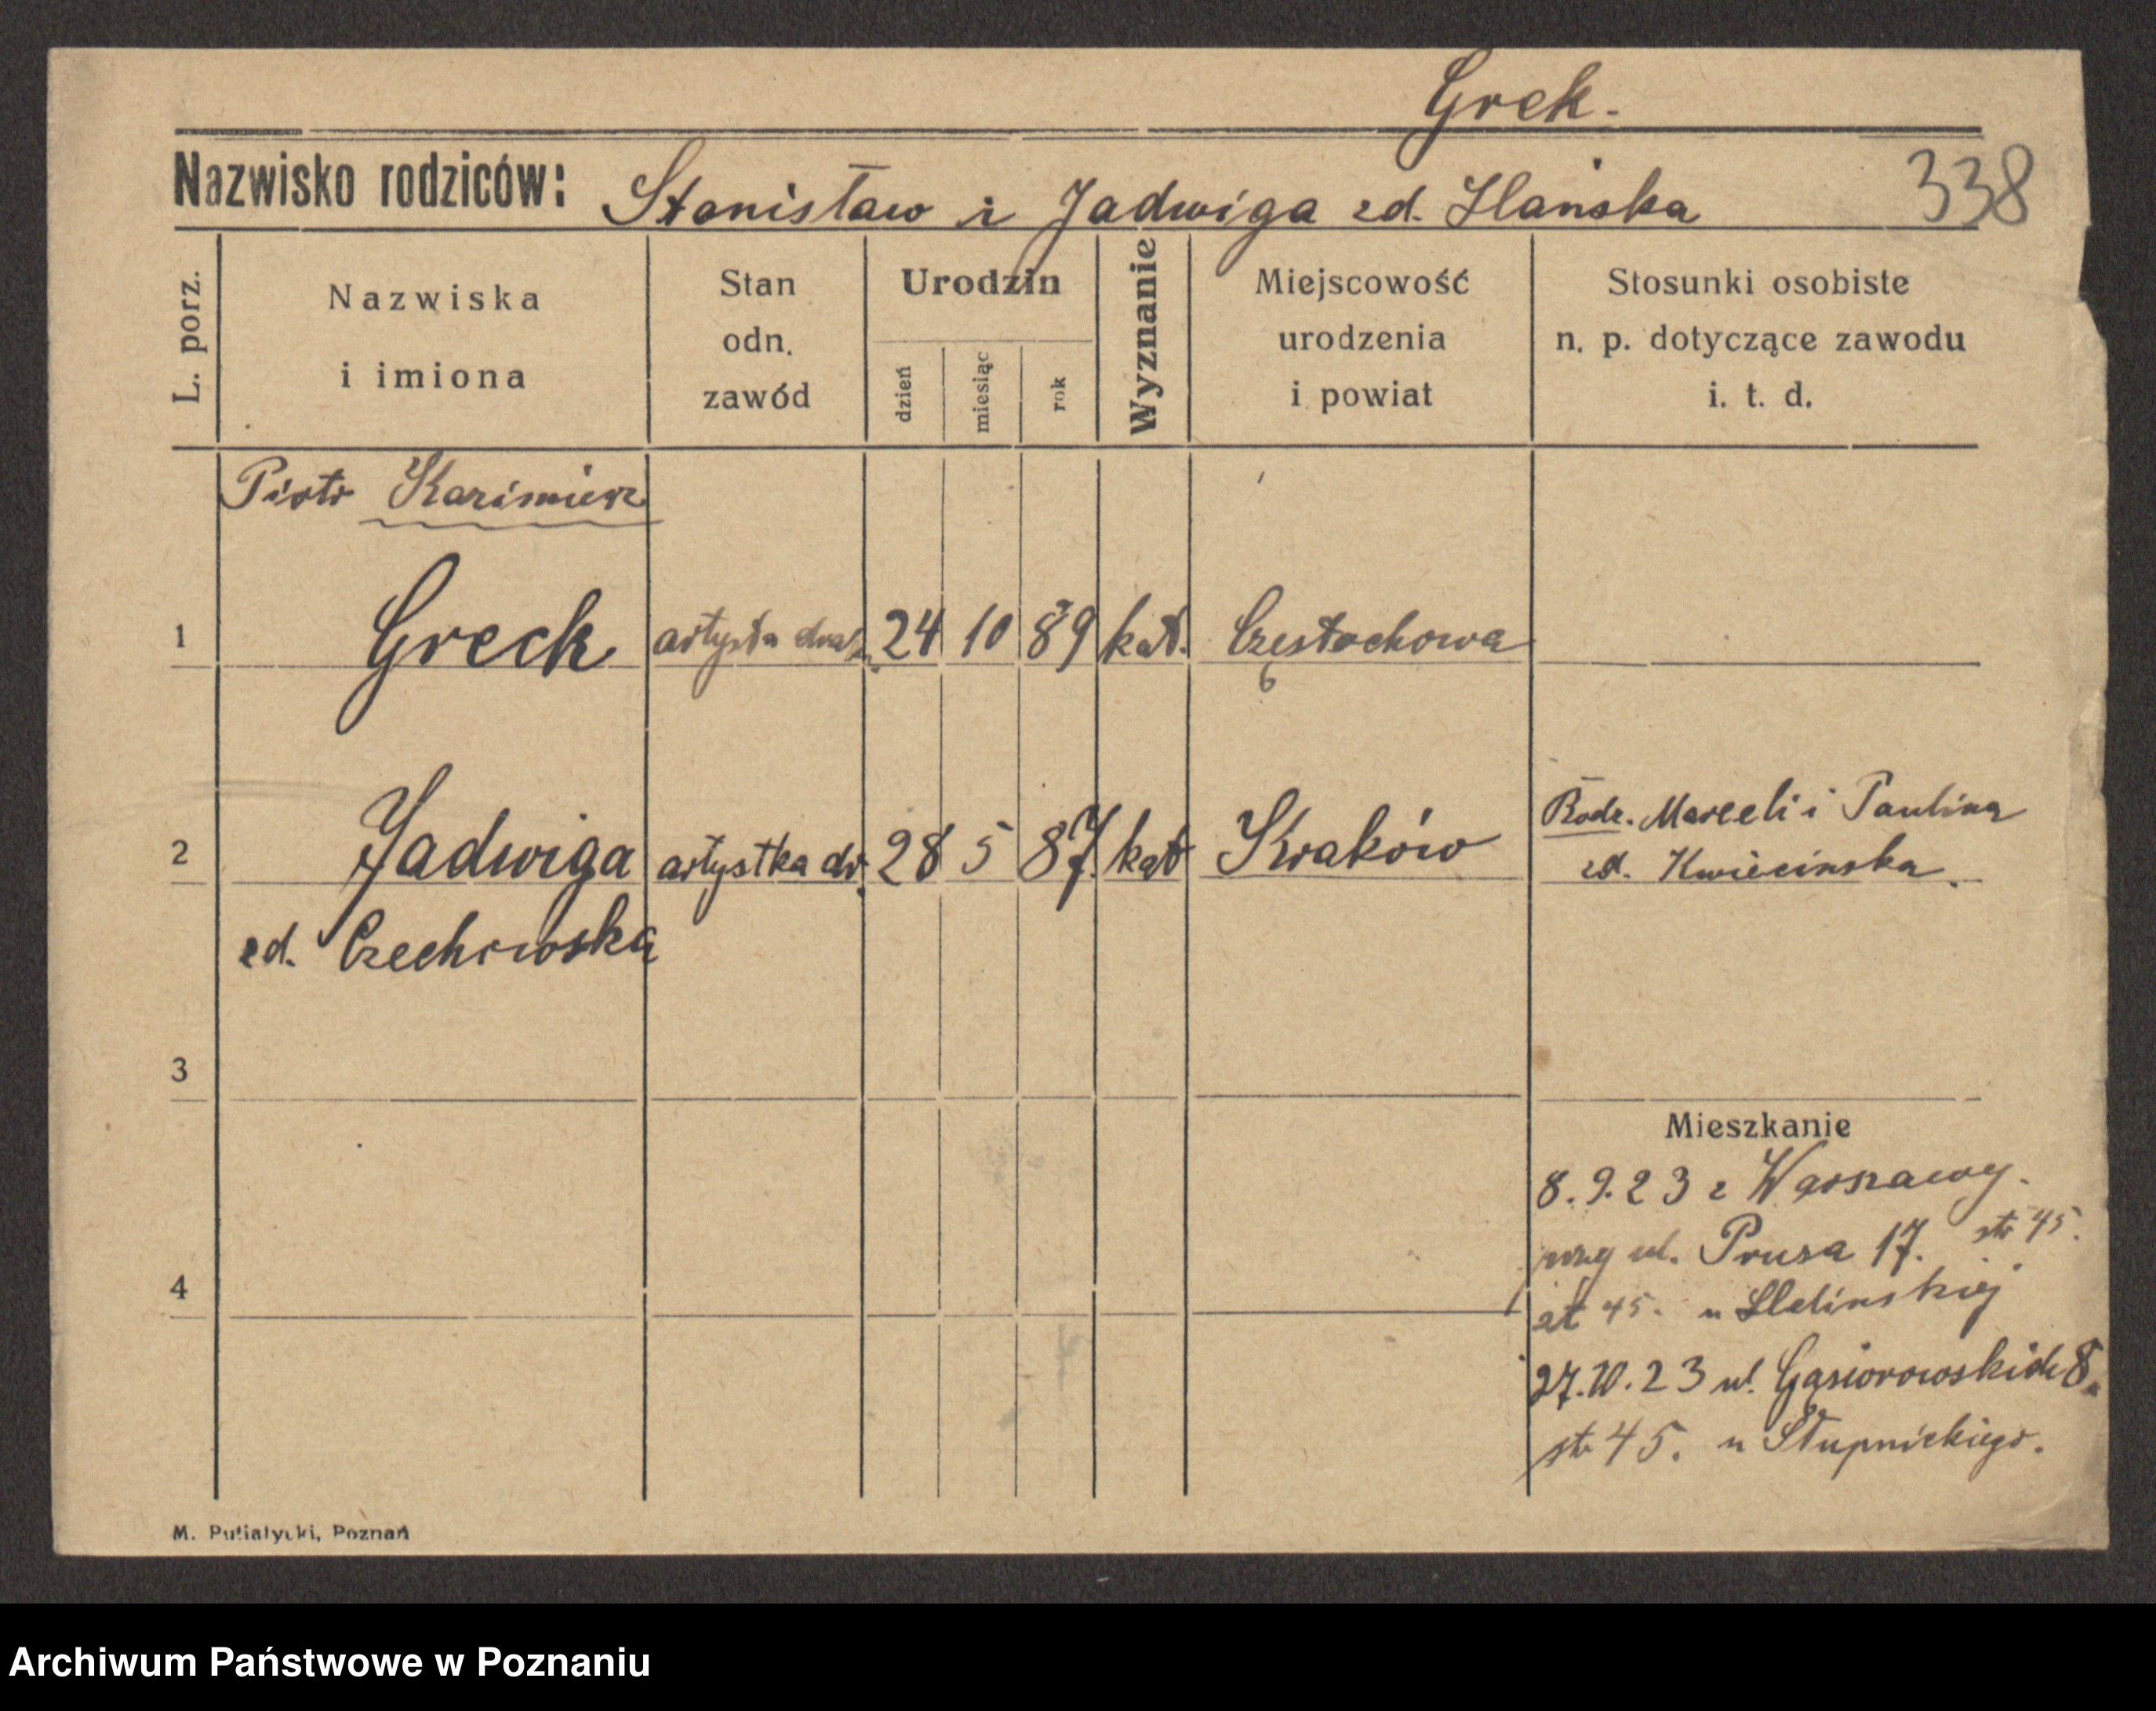 Grek.
Nazwisko rodziców: Stanisław i Jadwiga zd. Ilańska 338
L. porz.
Nazwiska i imiona
Stan odn. zawód
Urodzin
dzień miesiąc rok
Wyznanie
Miejscowość urodzenia i powiat
Stosunki osobiste n. p. dotyczące zawodu i. t. d.
Piotr Kazimierz
1 Greck artysta dram. 24 10 89 kat. Częstochowa
Rodz. Marceli i Paulina
2 Jadwiga artystka dr. 28 5 87. kat Kraków zd. Kwiecinska.
zd. Czechowska
3
Mieszkanie
8.9.23 z Warszawy.
przy ul. Prusa 17. str 45.
4
45. u
27.10.23 ul. Gąsiorowskich 8.
str 45. u Słupnickiego.
M. Putiatycki, Poznań
Archiwum Państwowe w Poznaniu